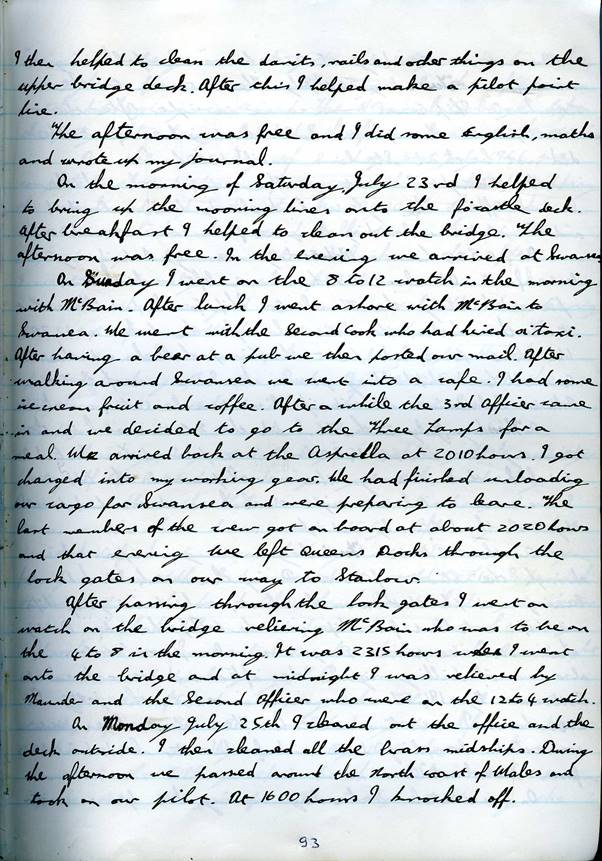 I then helped to clean the davits, rails and other things on the
upper bridge deck. After this I helped make a pilot point
line.
The afternoon was free and I did some English, maths
and wrote up my journal.
On the morning of Saturday, July 23rd I helped
to bring up the mooring lines onto the focastle deck.
After breakfast I helped to clean out the bridge. The
afternoon was free. In the evening we arrived at Swansea
On Sunday I went on the 8 to 12 watch in the morning
with McBain. After lunch I went ashore with McBain to
Swansea. We went with the Second Cook who had hired a taxi.
After having a beer at a pub we then posted our mail. After
walking around Swansea we went into a cafe. I had some
ice cream fruit and coffee. After a while the 3rd Officer came
in and we decided to go to the Three Lamps for a
meal. We arrived back at the Asprella at 2010 hours. I got
changed into my working gear. We had finished unloading
our cargo for Swansea and were preparing to leave. The
last members of the crew got on board at about 2020 hours
and that evening we left Queens Docks through the
lock gates on our way to Stanlow.
After passing through the lock gates I went on
watch on the bridge relieving McBain who was to be on
the 4 to 8 in the morning. It was 2315 hours when I went
onto the bridge and at midnight I was relieved by
Maunder and the Second Officer who were on the 12 to 4 watch.
On Monday July 25th I cleaned out the office and the
deck outside. I then cleaned all the brass midships. During
the afternoon we passed around the north coast of Wales and
took on our pilot. At 1600 hours I knocked off.
93